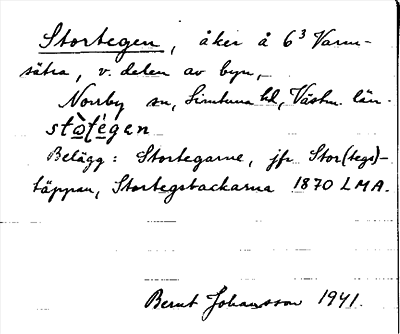 Stortegen, åker å 6³ Varm-
sätra, v. delen av byn,
Norrby sn, Simtuna hd, Västm. län.
stòtégen
Belägg: Stortegarne, jfr Stor(tegs)-
täppan, Stortegsbackarna 1870 LMA.
Bernt Johansson 1941.